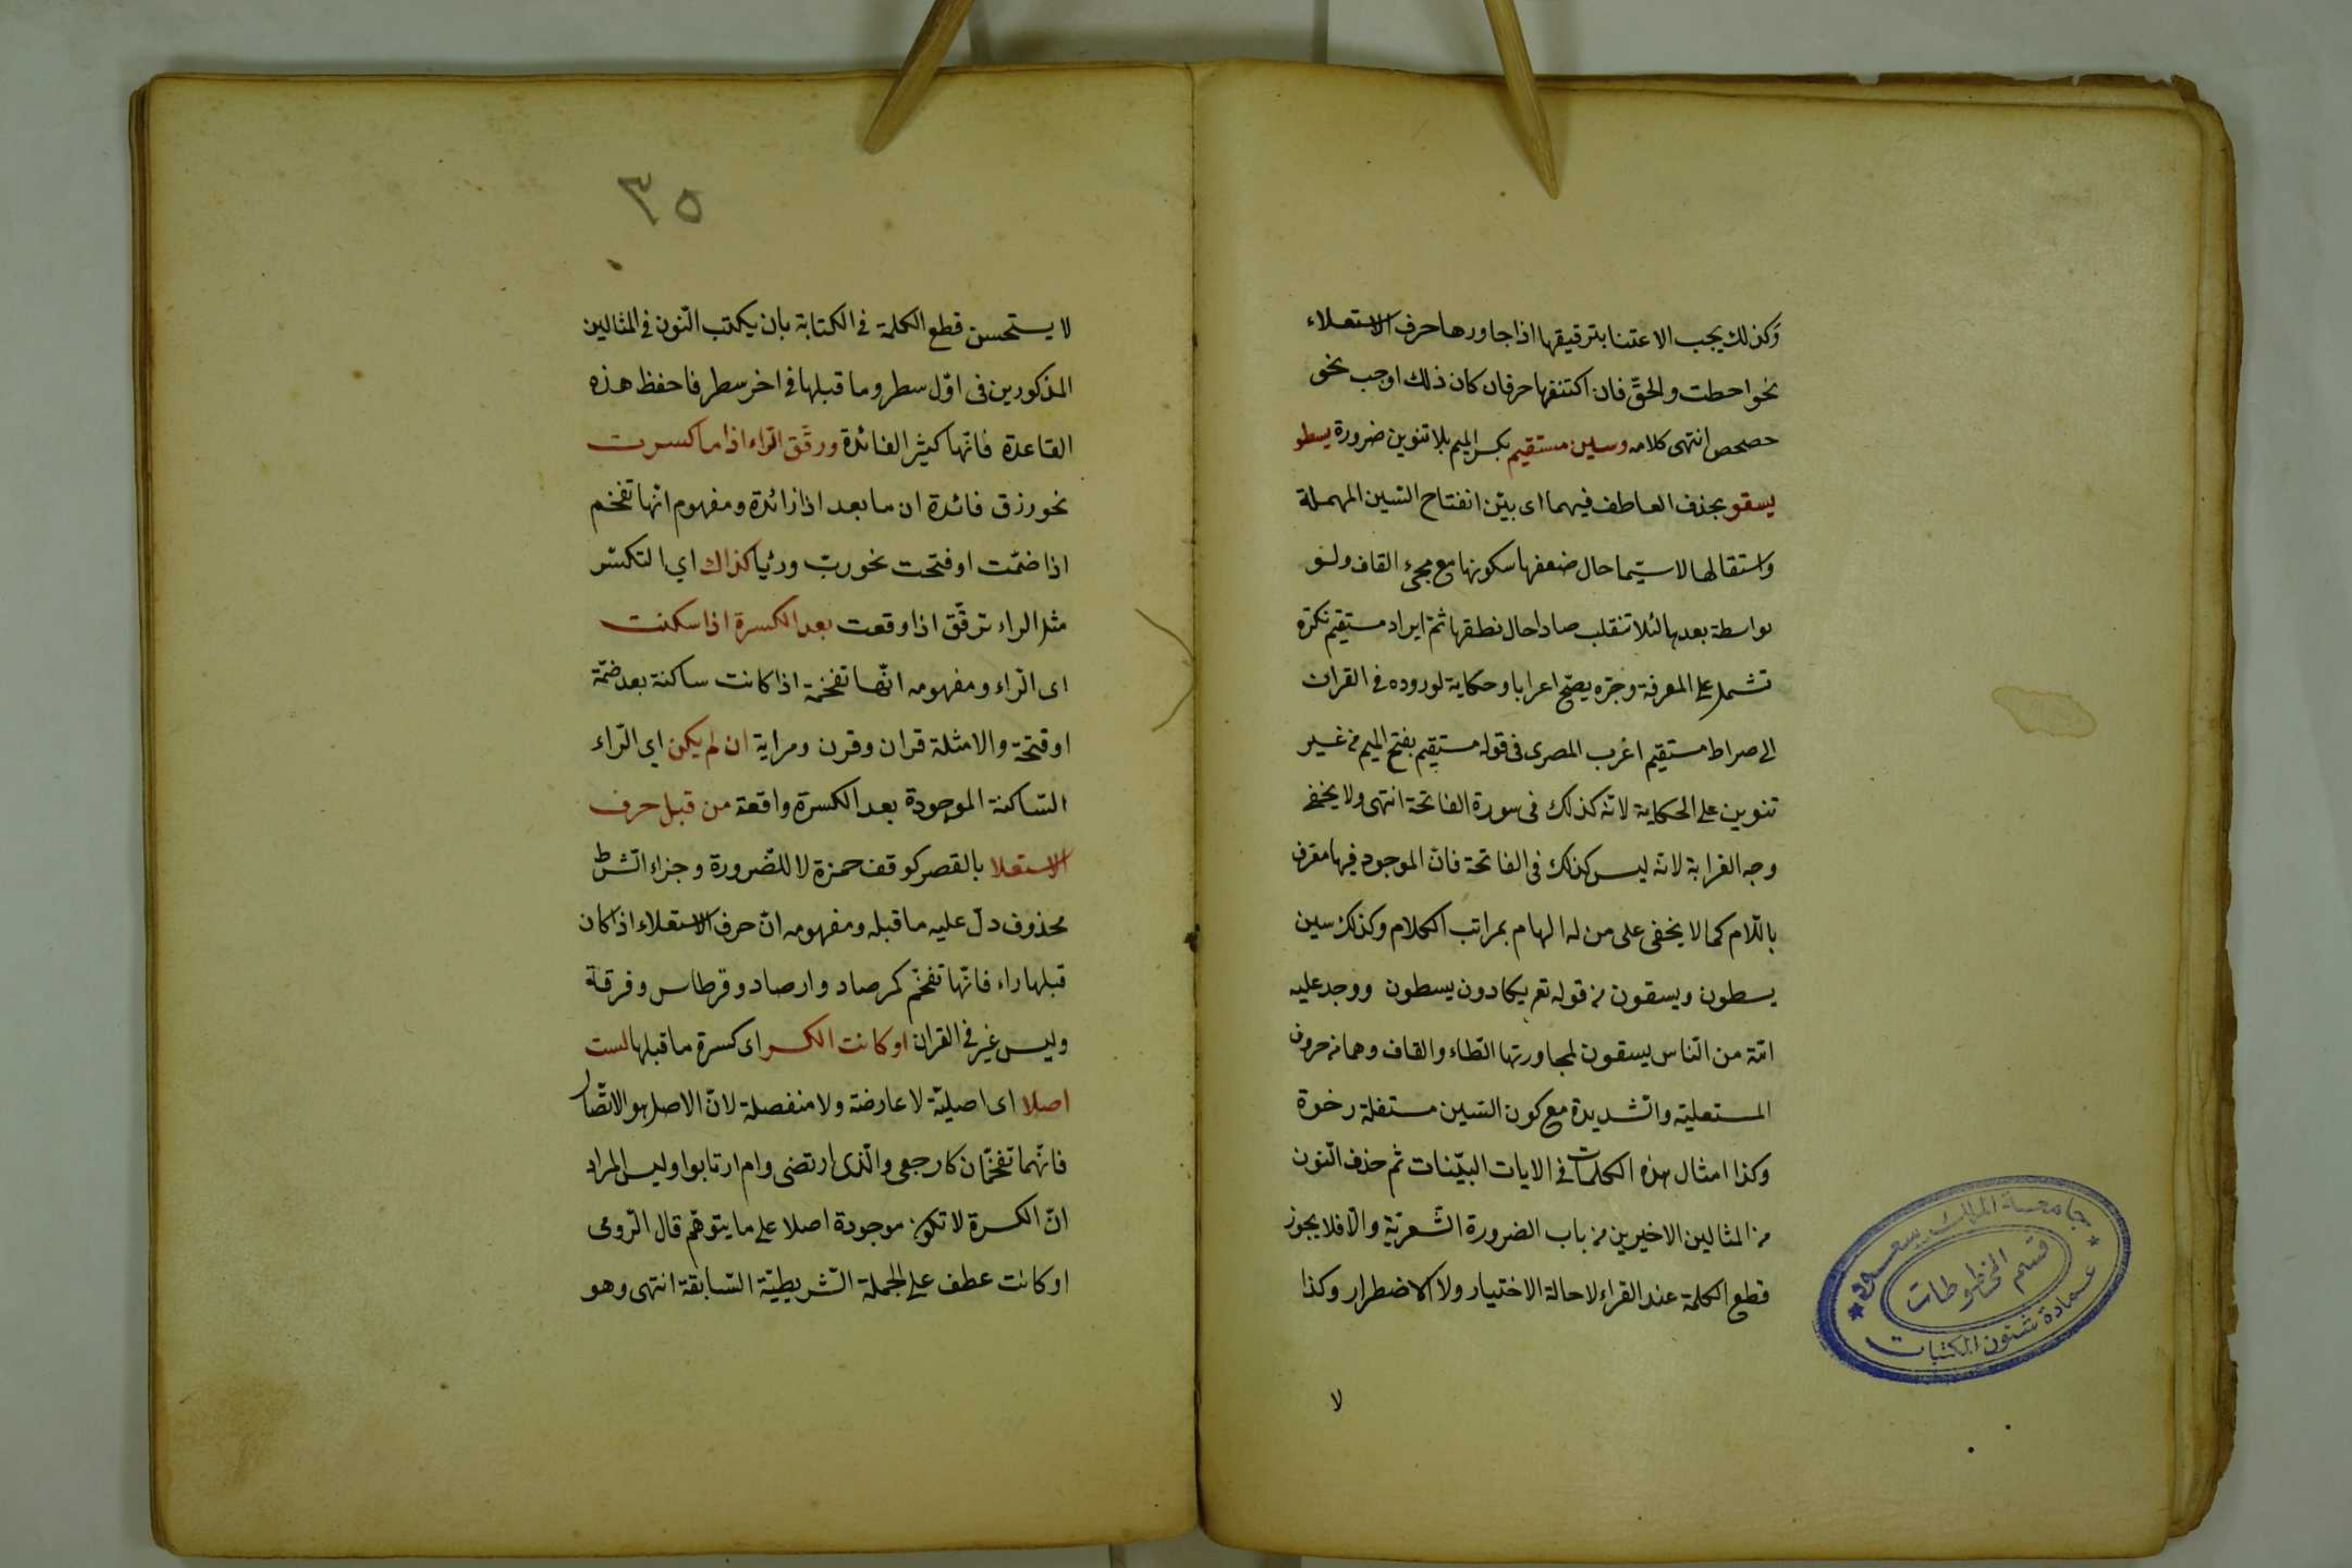 وكذلك يجب الاعتنا بترقيقها اذا جاورها حرف الاستعلاء
نحو احطت والحقّ فان اكتنفها حرفان كان ذلك اوجب نحو
حصحص انتهى كلامه وسين مستقيم بكسر الميم بلا تنوين ضرورة يسطو
يسقو بحذف العاطف فيهما اى بيّن انفتاح السّين المهملة
واستفالها لا سيّما حال ضعفها سكونها مع مجئ القاف ولو
بواسطة بعدها لئلا تنقلب صادا حال نطقها ثمّ ايراد مستقيم نكرة
تشمل على المعرفة وجرّه يصحّ اعرابا وحكاية لوروده فى القران
الى صراط مستقيم اغرب المصرى فى قوله مستقيم بفتح الميم من غير
تنوين على الحكاية لانّه كذلك فى سورة الفاتحة انتهى ولا يخفى
وجه الغرابة لانّه ليس كذلك فى الفاتحة فانّ الموجود فيها معرف
باللّام كما لا يخفى على من له الهام بمراتب الكلام وكذلك سين
يسطون ويسقون من قوله تع يكادون يسطون ووجد عليه
امّة من النّاس يسقون لمجاورتها الطّاء والقاف وهما من حروف
المستعلية والشّديدة مع كون السّين مستفلة رخوة
وكذا امثال هذه الكلمات فى الايات البيّنات ثم حذف النّون
من المثالين الاخيرين من باب الضرورة الشّعريّة والّا فلا يجوز
قطع الكلمة عند القراء لا حالة الاختيار ولا الاضطرار وكذا
لا
جامعة الملك سعود
قسم المخطوطات
عمادة شئون المكتبات
٣٥
لا يستحسن قطع الكلمة فى الكتابة بان يكتب النّون فى المثالين
المذكورين فى اوّل سطر وما قبلها فى اخر سطر فاحفظ هذه
القاعدة فانّها كثير الفائدة ورقّق الرّاء اذا ما كسرت
نحو رزق فائدة ان ما بعد اذا زائدة ومفهوم انّها تفخم
اذا ضمّت او فتحت نحو ربّ ورئيا كذاك اي التكسّر
مثل الراء ترقّق اذا وقعت بعد الكسرة اذا سكنت
اى الرّاء ومفهومه انّها تفخّمة اذا كانت ساكنة بعد ضمّة
او فتحة والامثلة قران وقرن ومراية ان لم يكن اي الرّاء
السّاكنة الموجودة بعد الكسرة واقعة من قبل حرف
الاستعلا بالقصر كوقف حمزة لا للضّرورة وجزاء الشّرط
محذوف دلّ عليه ما قبله ومفهومه انّ حرف الاستعلاء اذا كان
قبلها راء فانّها تفخّم كمرصاد وارصاد وقرطاس وفرقة
وليس غير فى القران او كانت الكسر اى كسرة ما قبلها لست
اصلا اى اصليّة لا عارضة ولا منفصلة لانّ الاصل هو الاتّصال
فانّهما تفخّمان كارجعى والّذى ارتضى وام ارتابوا وليس المراد
انّ الكسرة لا تكون موجودة اصلا على ما يتوهّم قال الرّومى
او كانت عطف على الجملة الشّرطيّة السّابقة انتهى وهو